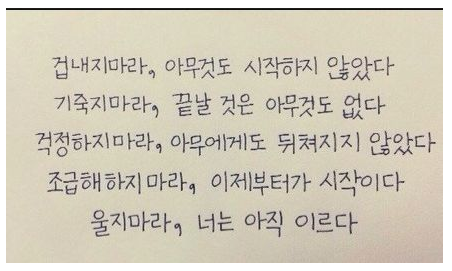 겁내지마라, 아무것도 시작하지 않았다
기죽지마라, 끝날 것은 아무것도 없다
걱정하지마라, 아무에게도 뒤쳐지지 않았다
조급해하지마라, 이제부터가 시작이다
울지마라, 너는 아직 이르다